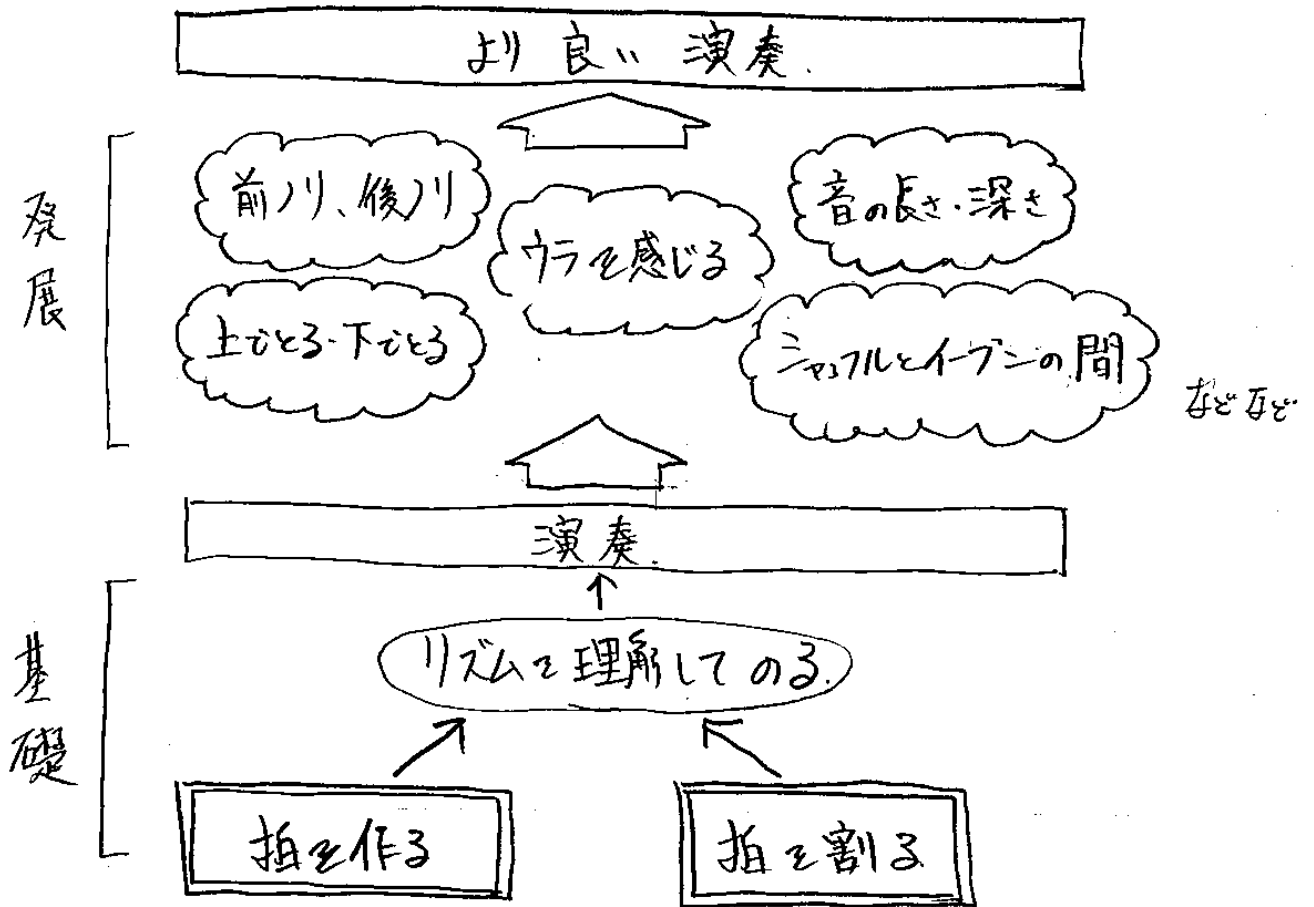 より良い演奏.
発展
前ノリ、後ノリ
ウラを感じる
音の長さ・深さ
上でとる・下でとる
シャッフルとイーブンの間
などなど
演奏.
基礎
リズムを理解してのる.
拍を作る
拍を割る